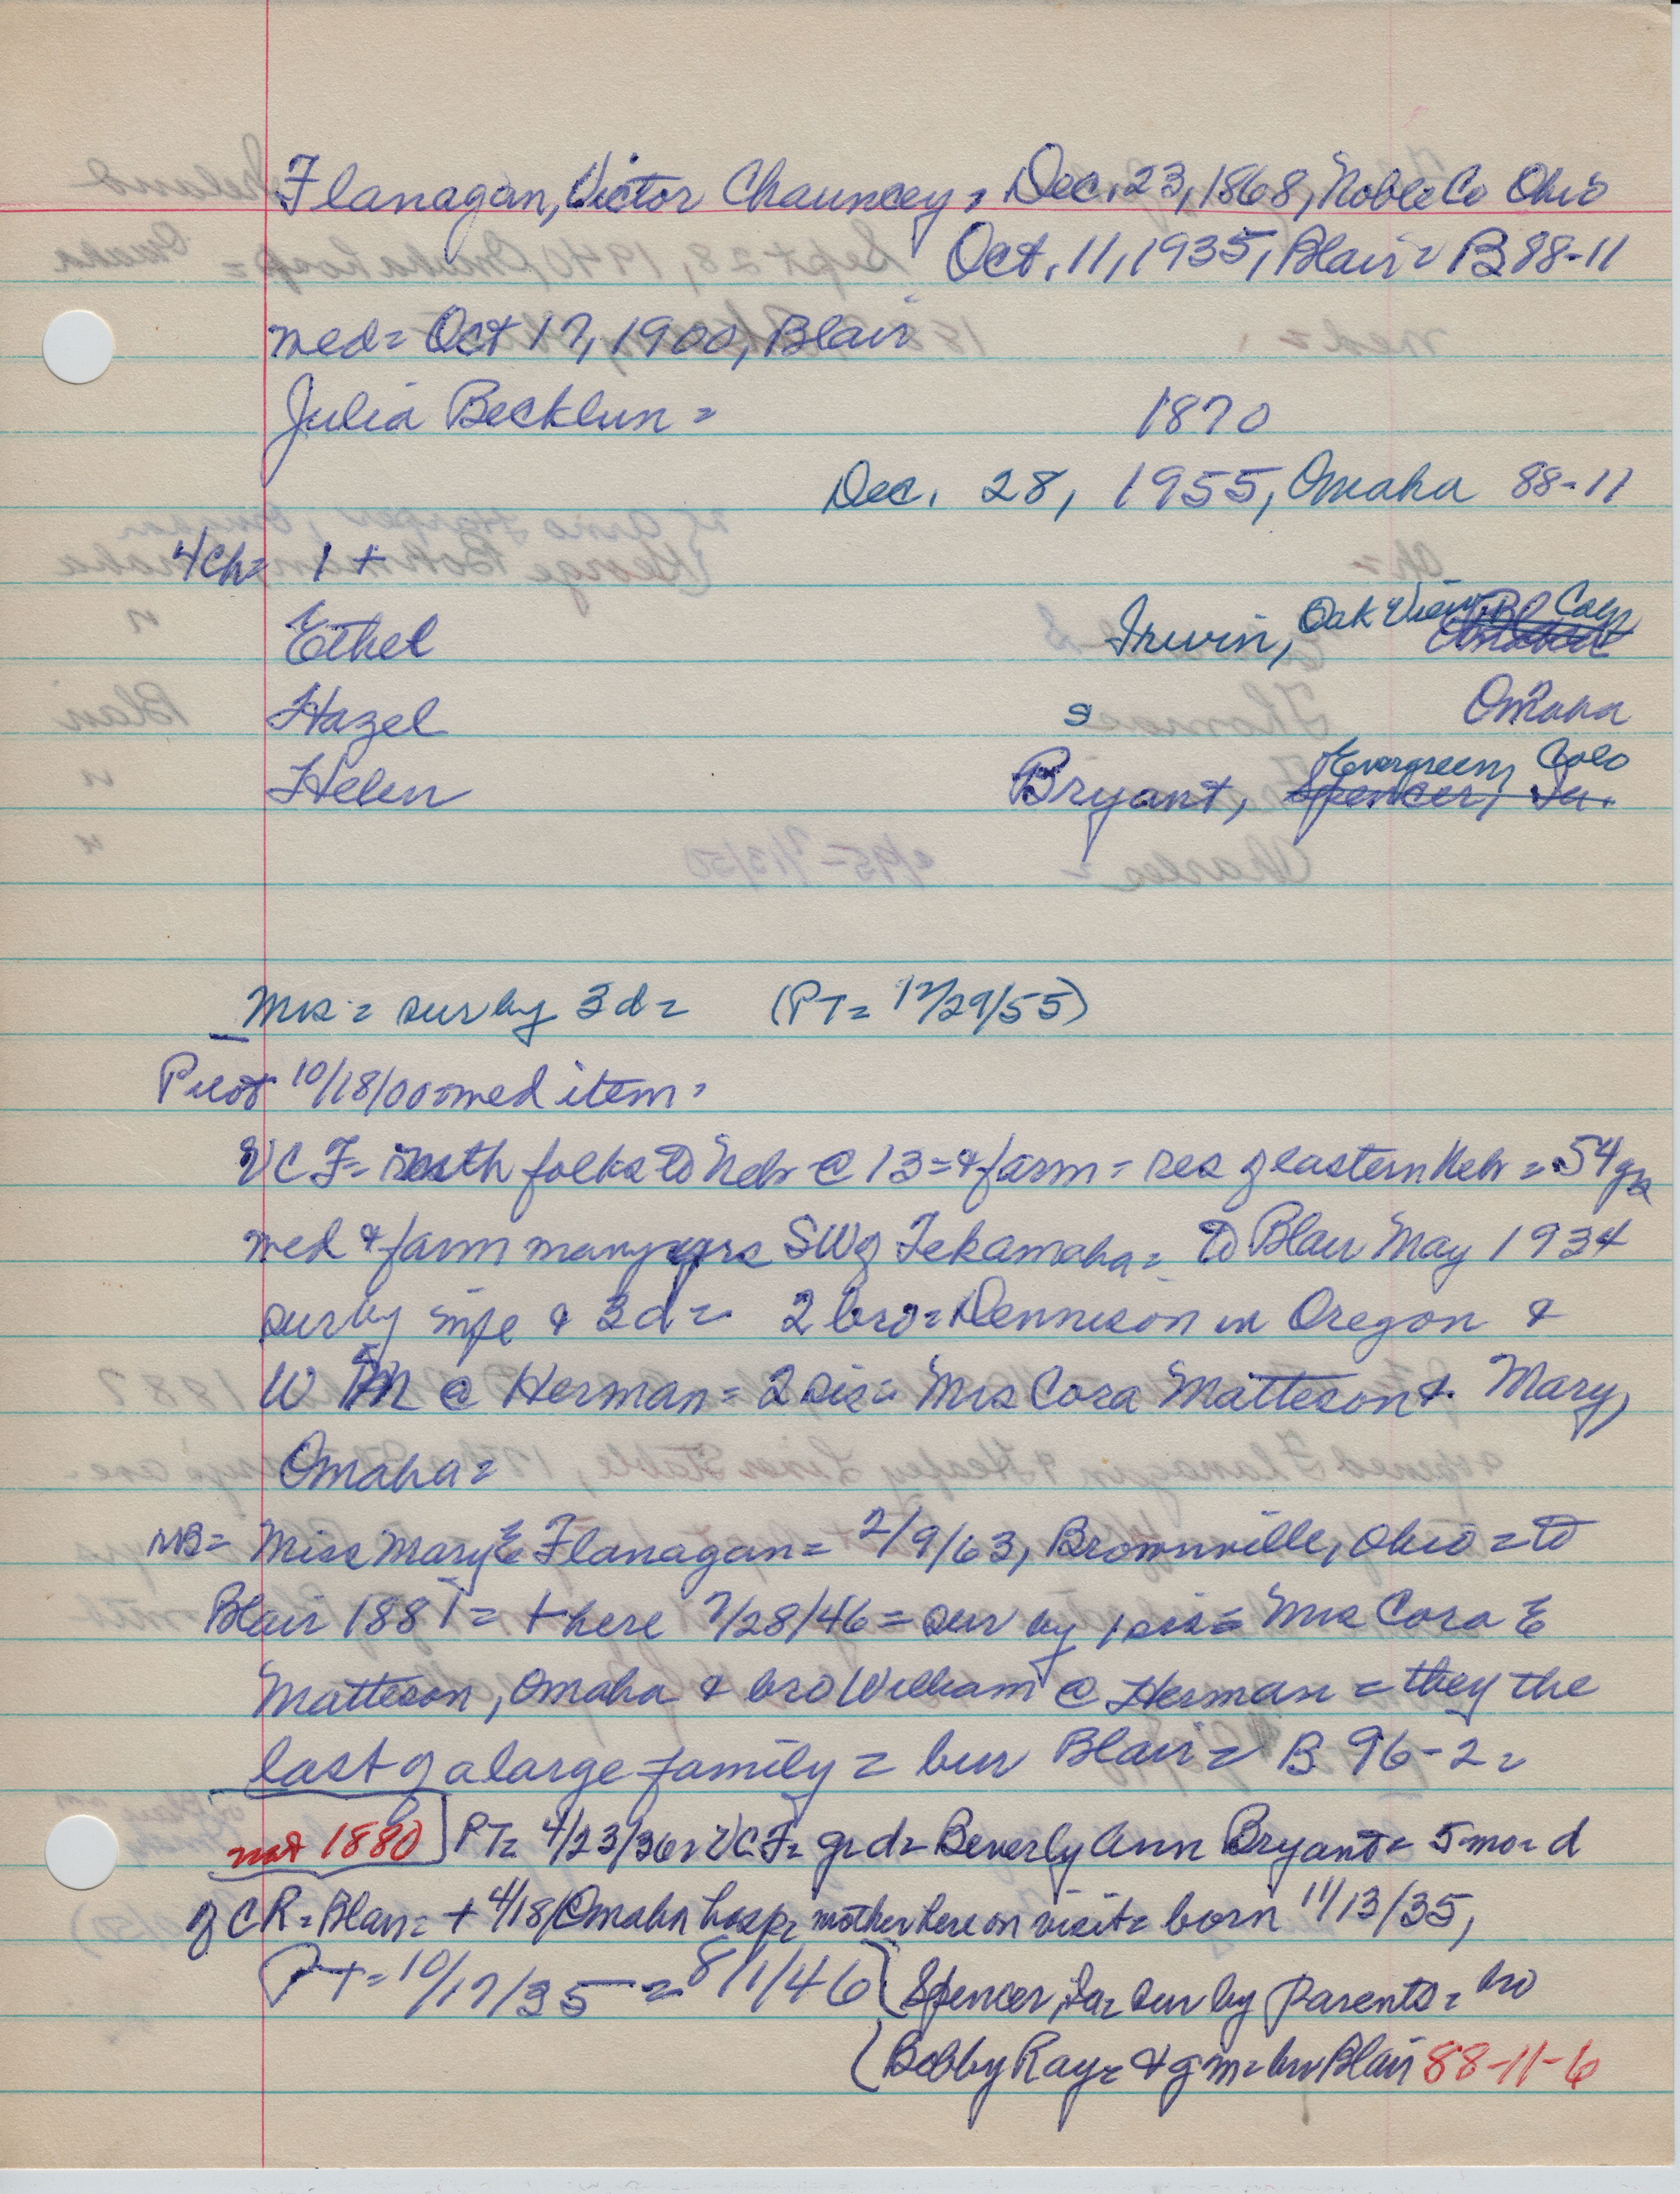 Flanagan, Victor Chauncey, Dec. 23, 1868, Noble Co Ohio
Oct. 11, 1935, Blair = B 88-11
med = Oct 17, 1900, Blair
Julia Becklun = 1870
Dec. 28, 1955, Omaha 88-11
4 Ch = 1 +
Ethel Irwin, Oak View, Colo
Hazel s Omaha
Evergreen, Colo
Helen Bryant, Spencer, Ia.
Mrs = sur by 3 d = (PT = 12/29/55)
Pilot 10/18/00 = med item =
VCF = with folks to Neb @ 13 = & farm = res of eastern Neb = 54 yrs
med & farm many yrs SW of Tekamaha = to Blair May 1934
sur by wife & 3 d = 2 bro = Dennison in Oregon &
W M @ Herman = 2 sis = Mrs Cora Matteson & Mary,
Omaha =
NB = Miss Mary E Flanagan = 2/9/63, Brownville, Ohio = to
Blair 1881 = + here 7/28/46 = sur by 1 sis = Mrs Cora E
Matteson, Omaha & bro William @ Herman = they the
last of a large family = bur Blair = B 96-2 =
not 1880 PT = 4/23/36 = VCF = gr d = Beverly Ann Bryant = 5 mo = d
of CR = Blair = + 4/18/ Omaha hosp = mother here on visit = born 11/13/35,
PT = 10/17/35 = 8/1/46 Spencer, Ia = sur by parents = bro
Bobby Ray = & g m = bur Blair 88-11-6